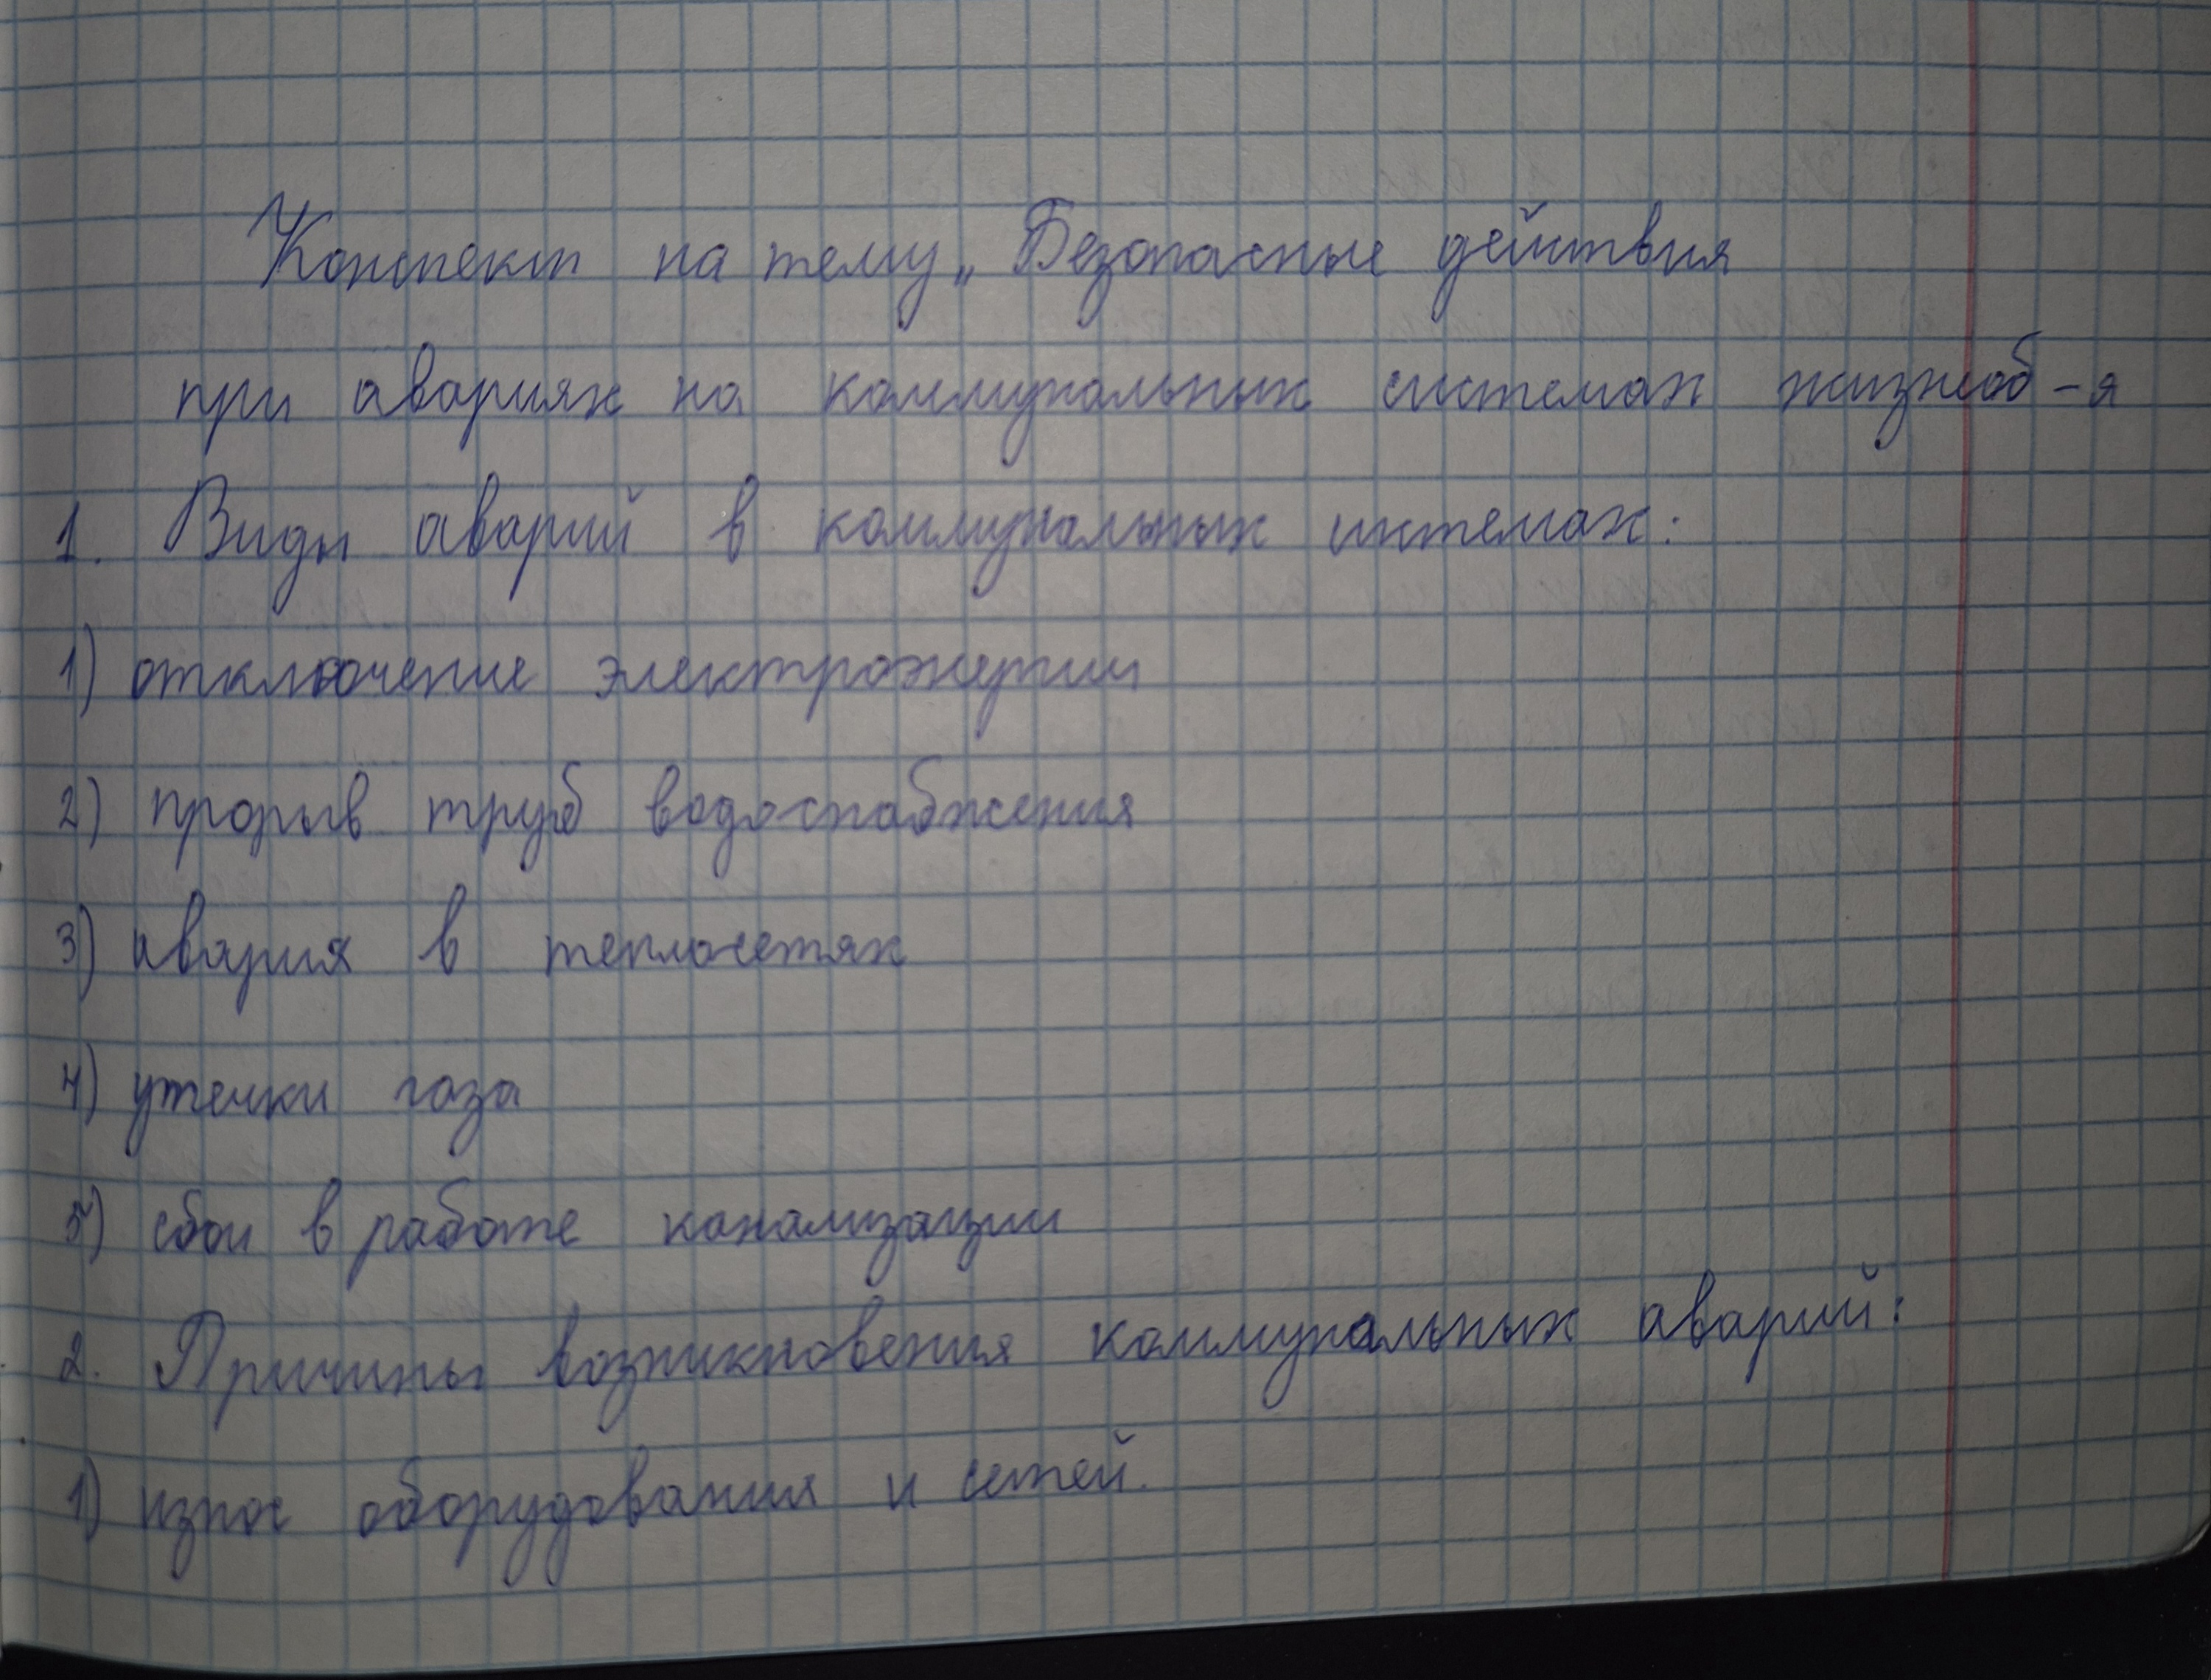 Конспект на тему „Безопасные действия
при авариях на коммунальных системах жизнеоб-я
1. Виды аварий в коммунальных системах:
1) отключение электроэнергии
2) прорыв труб водоснабжения
3) авария в теплосетях
4) утечки газа
5) сбои в работе канализации
2. Причины возникновения коммунальных аварий:
1) износ оборудования и сетей.